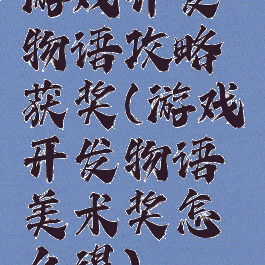 游戏开发
物语攻略
获奖(游戏
开发物语
美术奖怎
么得)